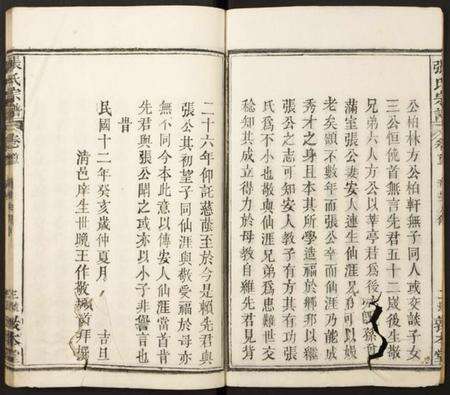 張氏宗譜
公柏林方公柏軒無子同人或交談子女
三公恒俛首無言先君五十二歲後生敬
兄弟六人方公以莘亭君為後
滿室張公妻安人連生仙涯兄弟可以娛
老矣顧不數年而張公辛而仙涯乃能成
秀才之身且本其所學造福於鄉邦以繼
張公之志可知安人教子有方其有功張
氏為不小也敬與仙涯兄弟為患難世交
稔知其成立得力於母教自維先君見背
二十六年仰託慈蔭至於今是賴先君與
張公其初望子同仙涯與敬受福於母亦
無不同今本此意以傳安人仙涯當首肯
先君與張公聞之或亦以小子非譽言也
昔
民國十二年癸亥歲仲夏月 吉旦
清邑庠生世晚王作敬頓首拜撰
張氏宗譜 卷首
敦本堂
敦本堂